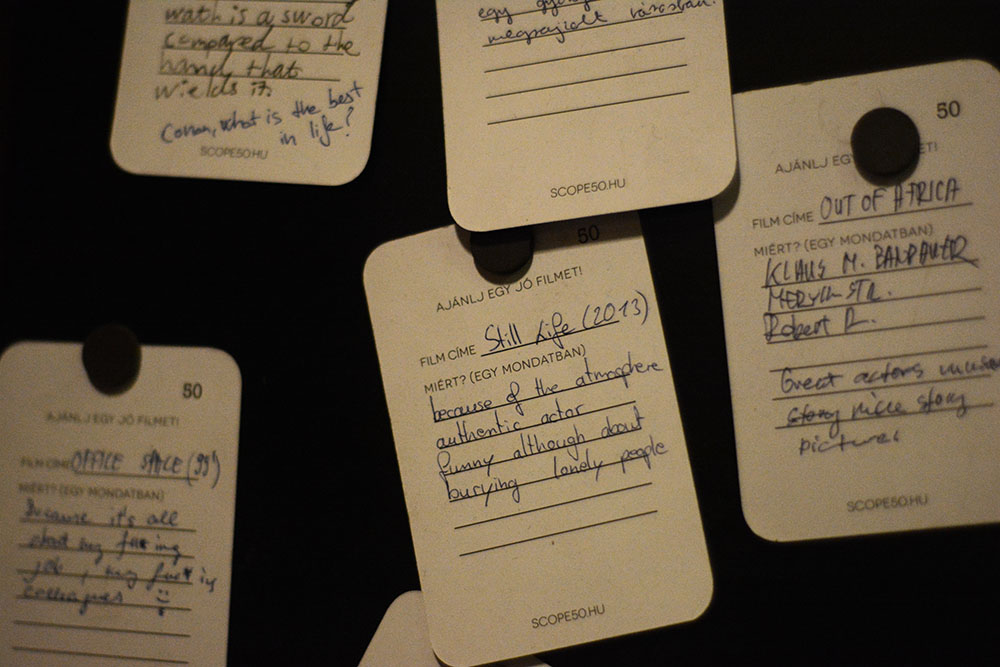 watch is a sword
compared to the
hand that
wields it
Conan, what is the best
in life?
SCOPE50.HU
egy
megrajzolt városban.
SCOPE50.HU
50
AJÁNLJ EGY FILMET!
FILM CÍME OUT OF AFRICA
MIÉRT? (EGY MONDATBAN)
KLAUS M. BANDAUER
MERYLL STR.
Robert R.
Great actors
story nice story
pictures
SCOPE50.HU
50
AJÁNLJ EGY JÓ FILMET!
FILM CÍME Still Life (2013)
MIÉRT? (EGY MONDATBAN)
because of the atmosphere
authentic actor
funny although about
burying lonely people
SCOPE50.HU
50
AJÁNLJ EGY JÓ FILMET!
FILM CÍME OFFICE SPACE (99')
MIÉRT? (EGY MONDATBAN)
Because it's all
about my fu**ing
job, my fu**in
colleagues :)